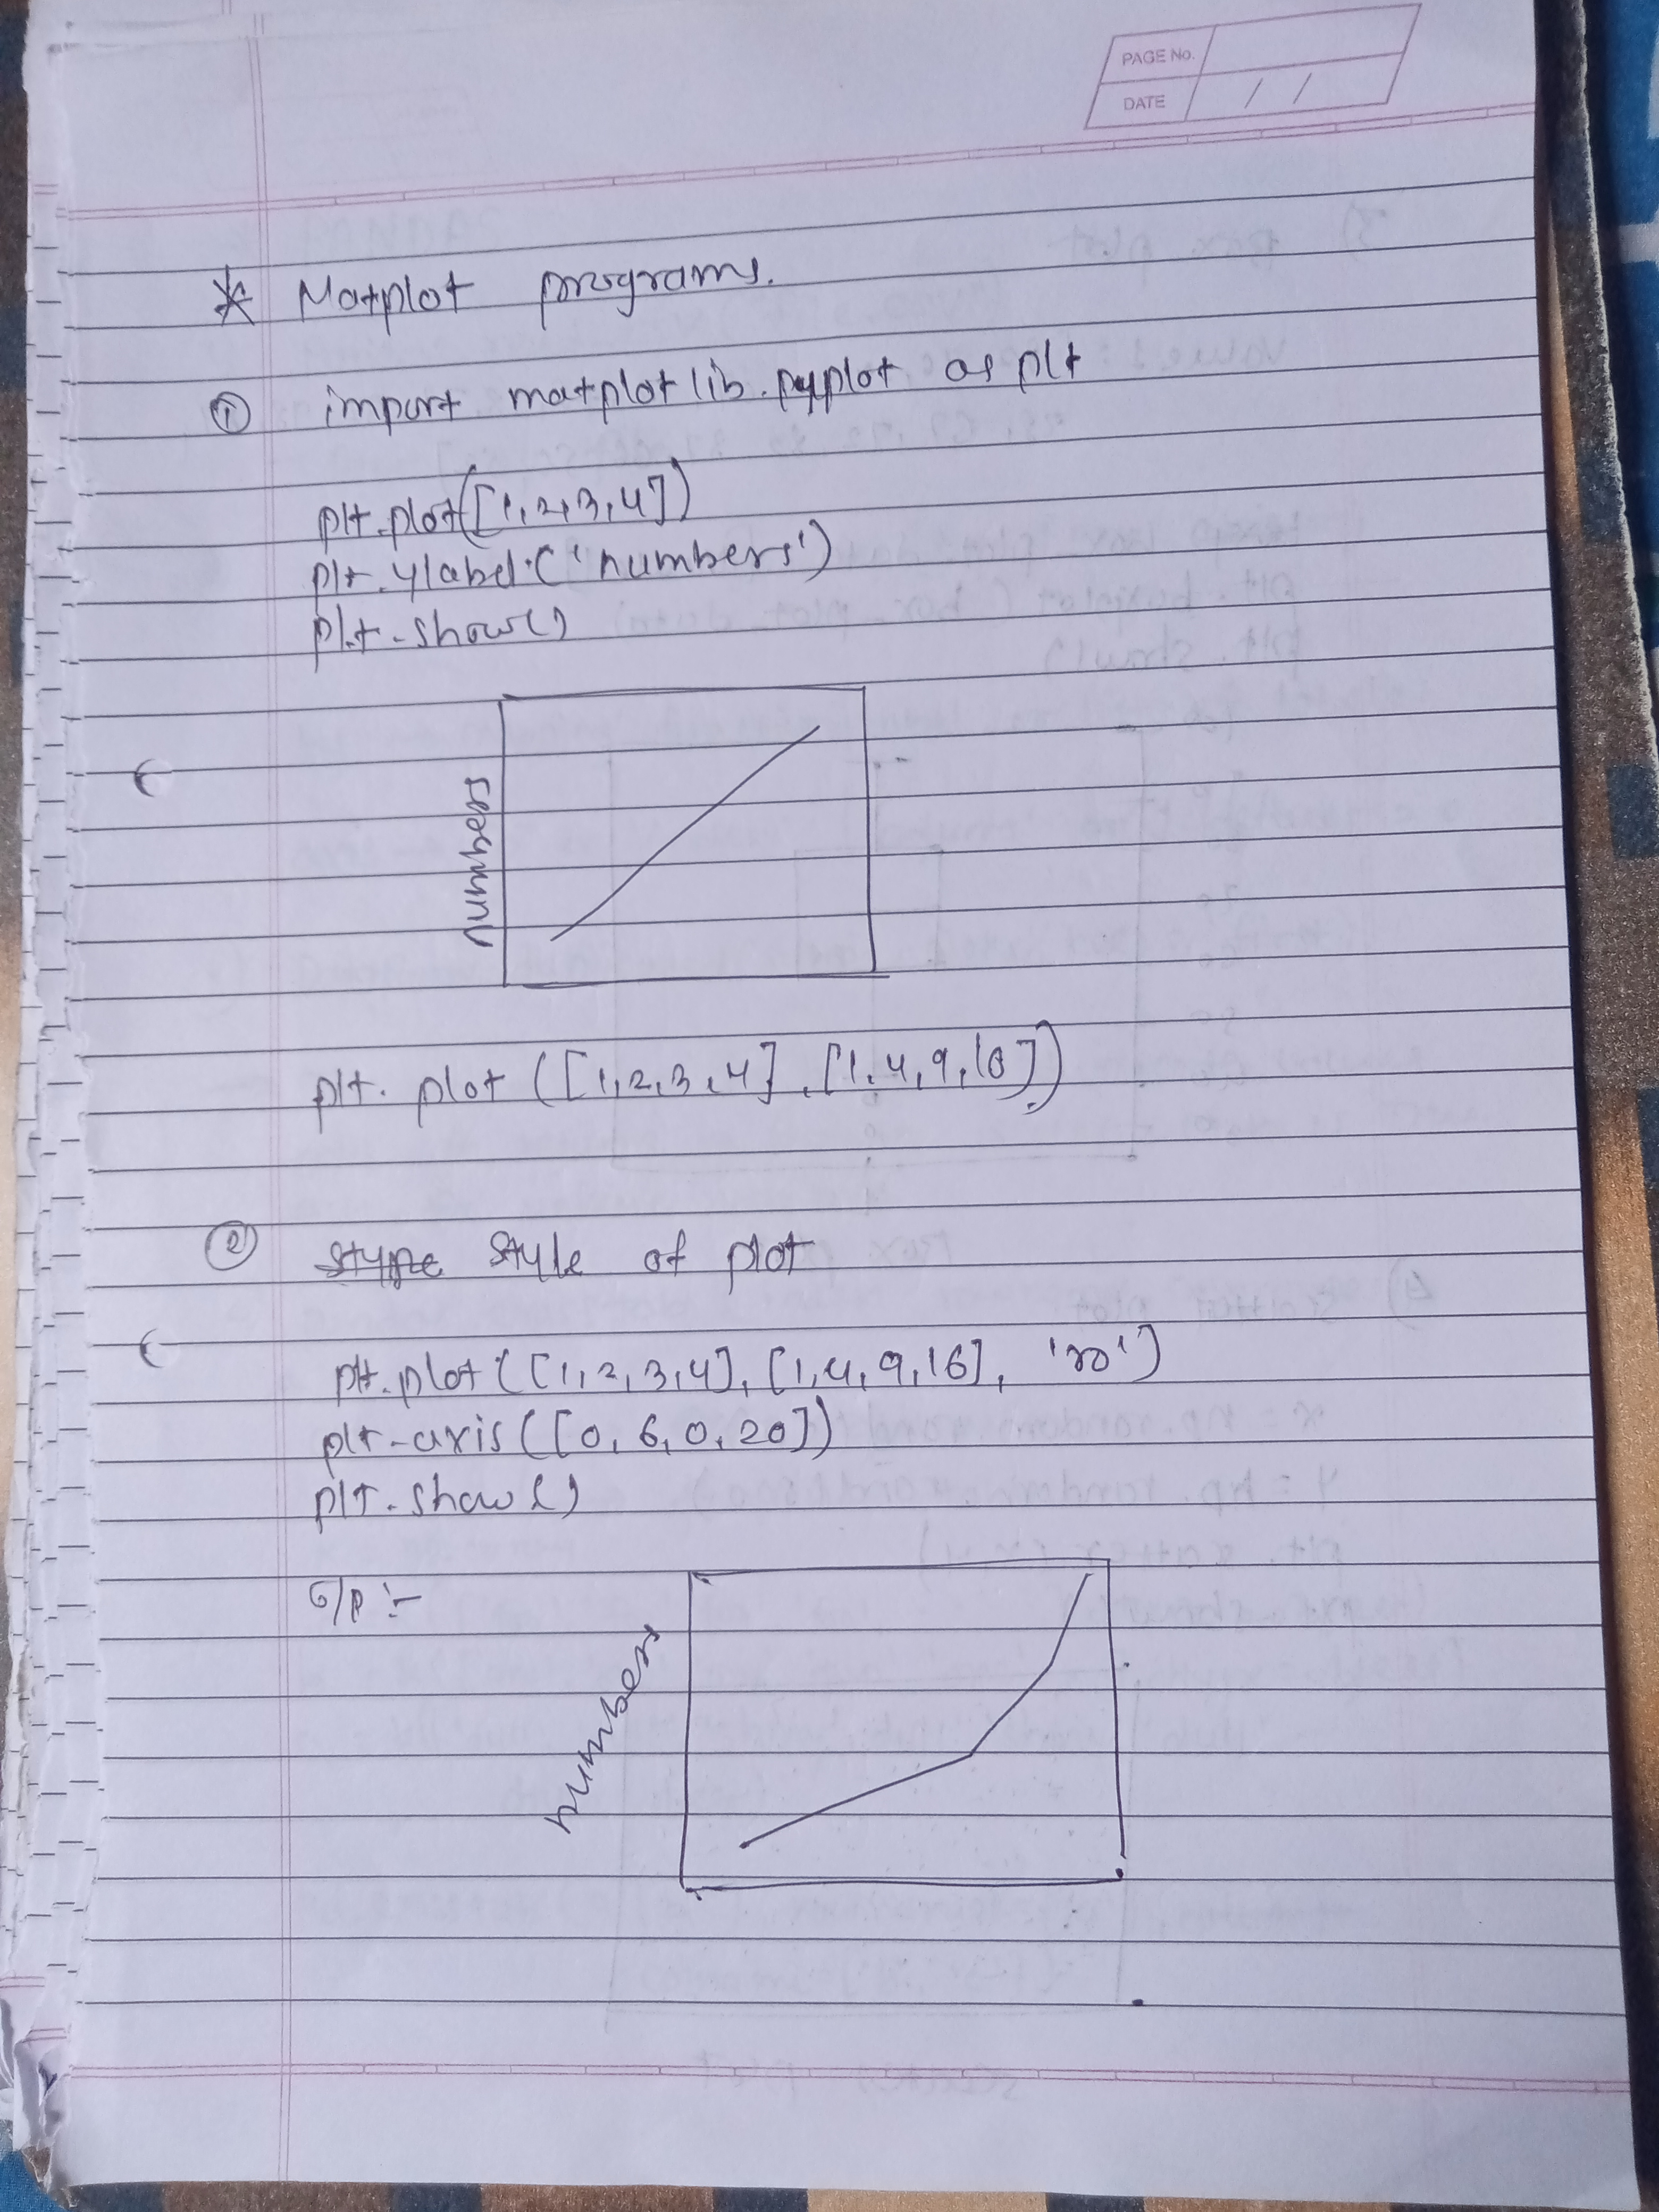 PAGE No.
DATE / /
* Matplot programs.
① import matplotlib.pyplot as plt
plt.plot([1,2,3,4])
plt.ylabel('numbers')
plt.show()
Numbers
plt. plot ([1,2,3,4], [1,4,9,16])
② style of plot
plt.plot([1,2,3,4], [1,4,9,16], 'ro')
plt.axis([0, 6, 0, 20])
plt.show()
O/P :-
numbers